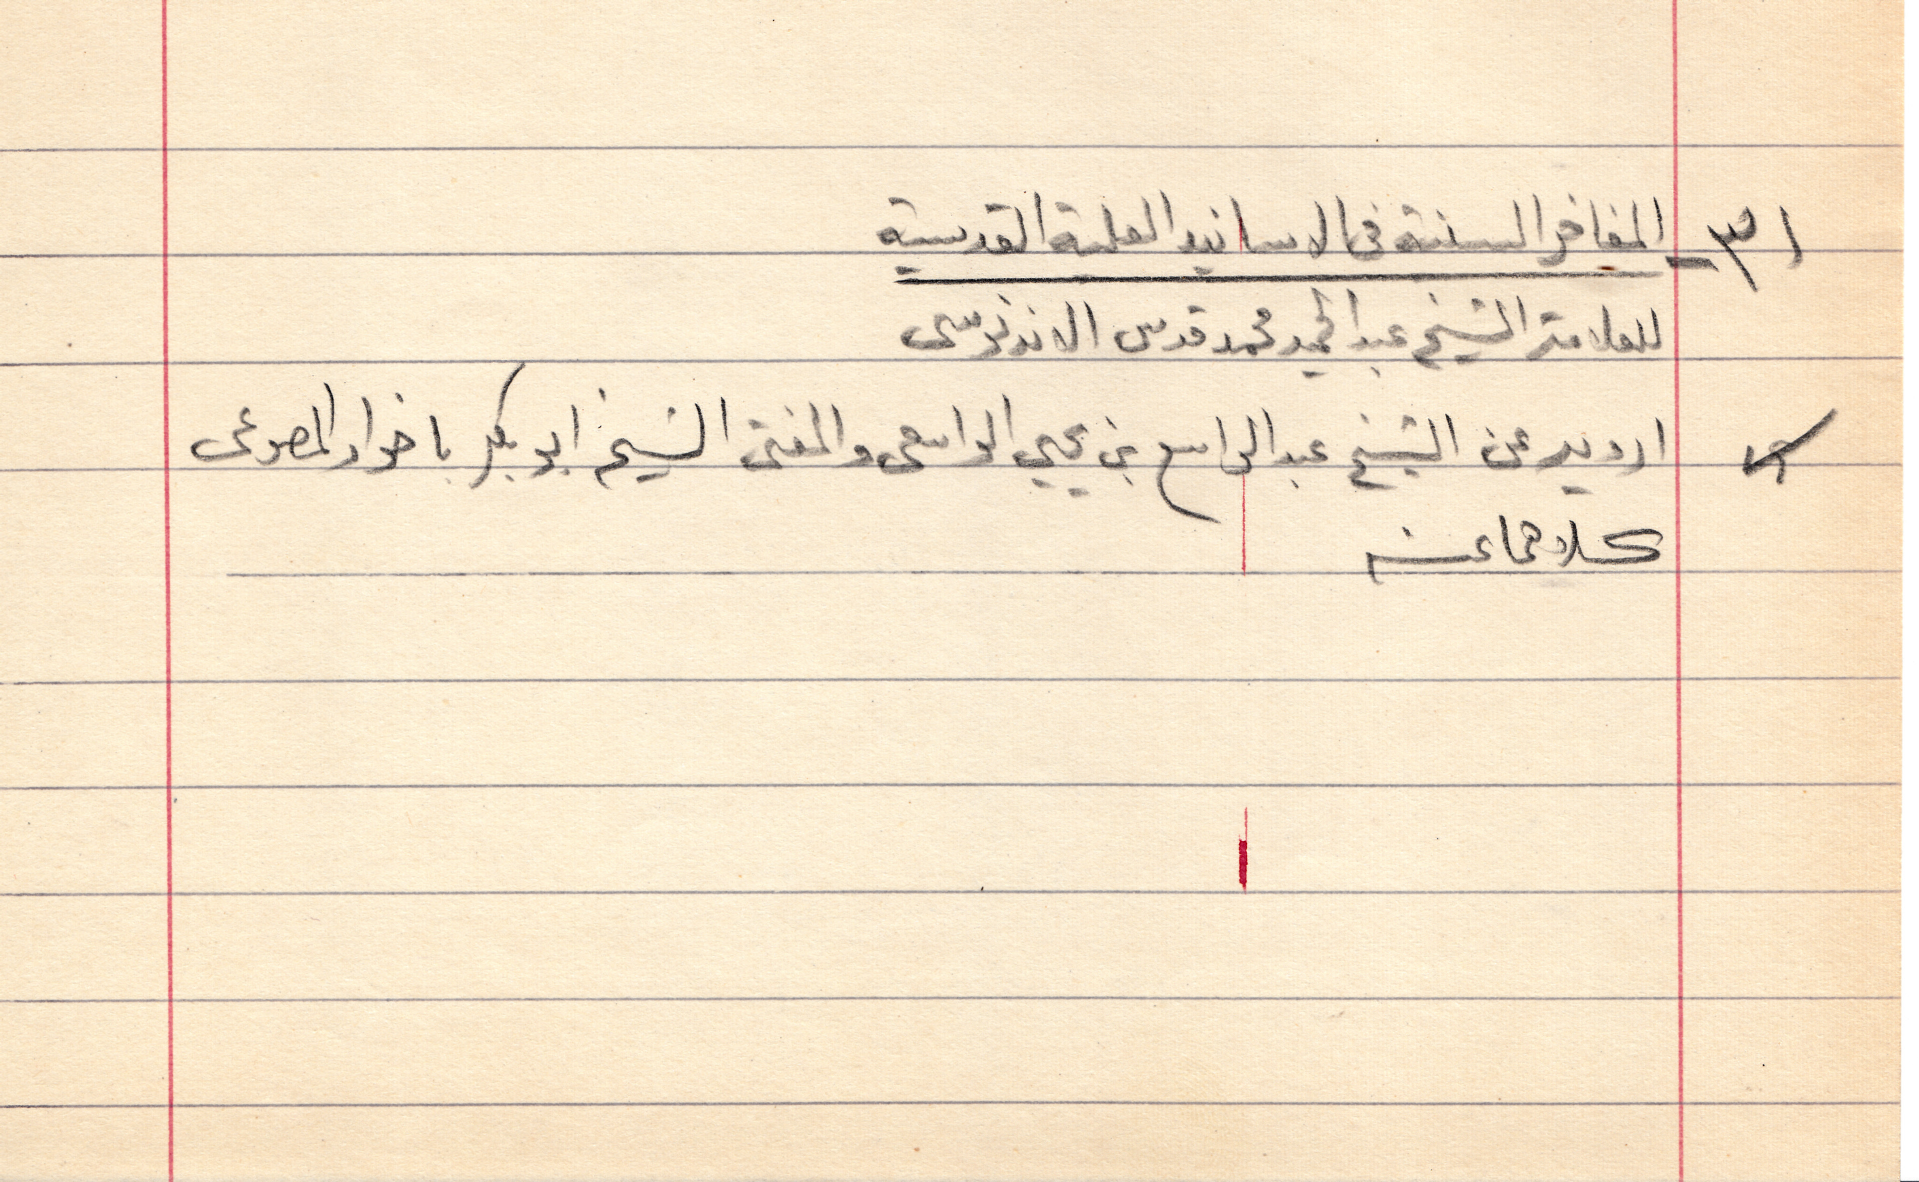 ١٣- المفاخر السنية في الاسانيد العلية القدسية
للعلامة الشيخ عبدالحميد محمد قدس الاندنوسى
ارويه عن الشيخ عبدالواسع بن يحيي الواسعى والمفتى الشيخ ابوبكر باخوار المصوعى
كلاهما عنه